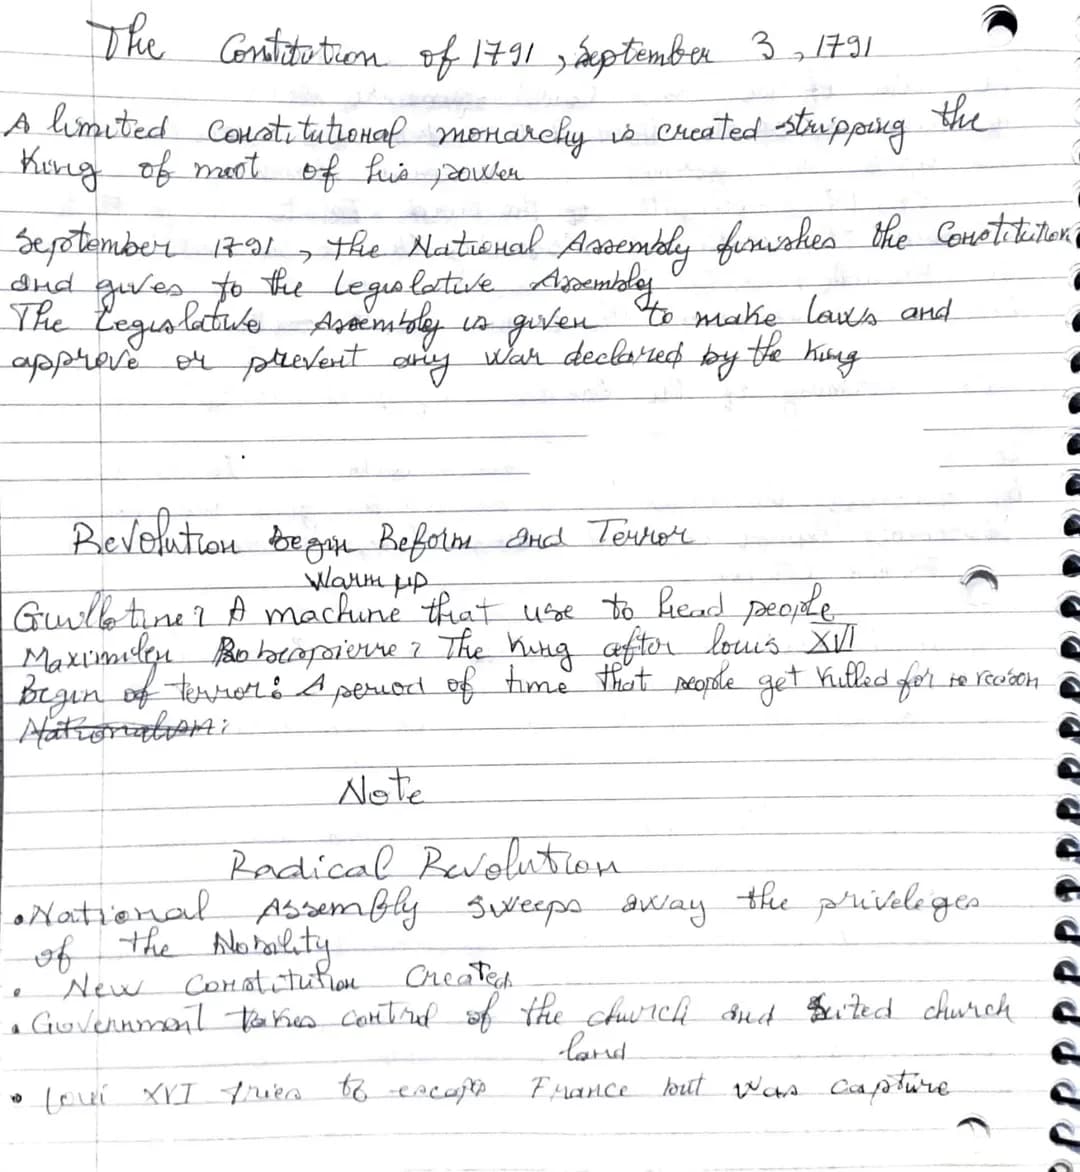 The Contitution of 1791, September 3, 1791
A limited constitutional monarchy is created stripping the
King of most of his power
September 1791, the National Assembly finishes the Constitution
and gives to the Legislative Assembly
The Legislative Assembly is given to make laws and
approve or prevent any war declared by the King
Revolution Begin Reform and Terror
Warm up
Guillotine: A machine that use to head people
Maximilen Robespierre: The King after louis XVI
Begin of terror: A period of time that people get killed for no reason
Nationalism:
Note
Radical Revolution
• National Assembly sweeps away the priveleges
of the Nobility
• New Constitution Created
• Government takes control of the church and church
land
• Loui XVI tries to escape France but was capture